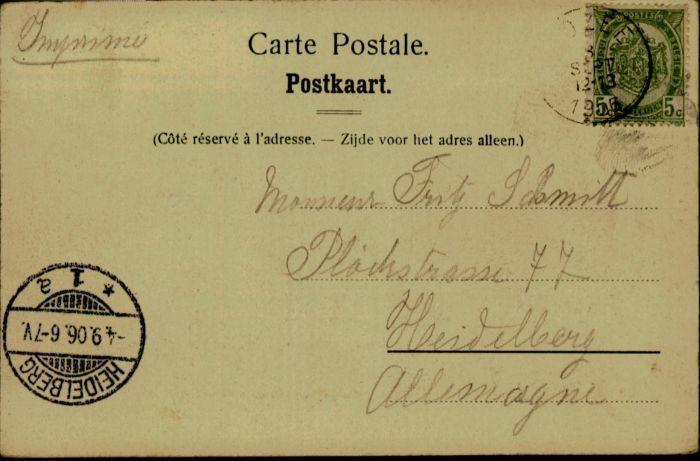 Imprimé
Carte Postale.
Postkaart.
(Côté réservé à l'adresse. — Zijde voor het adres alleen.)
POSTES
5 5c
12-13
Monsieur Fritz Schmitt
Plöckstrasse 77
Heidelberg
Allemagne
HEIDELBERG
-4.9.06.6-7V.
* 1 a